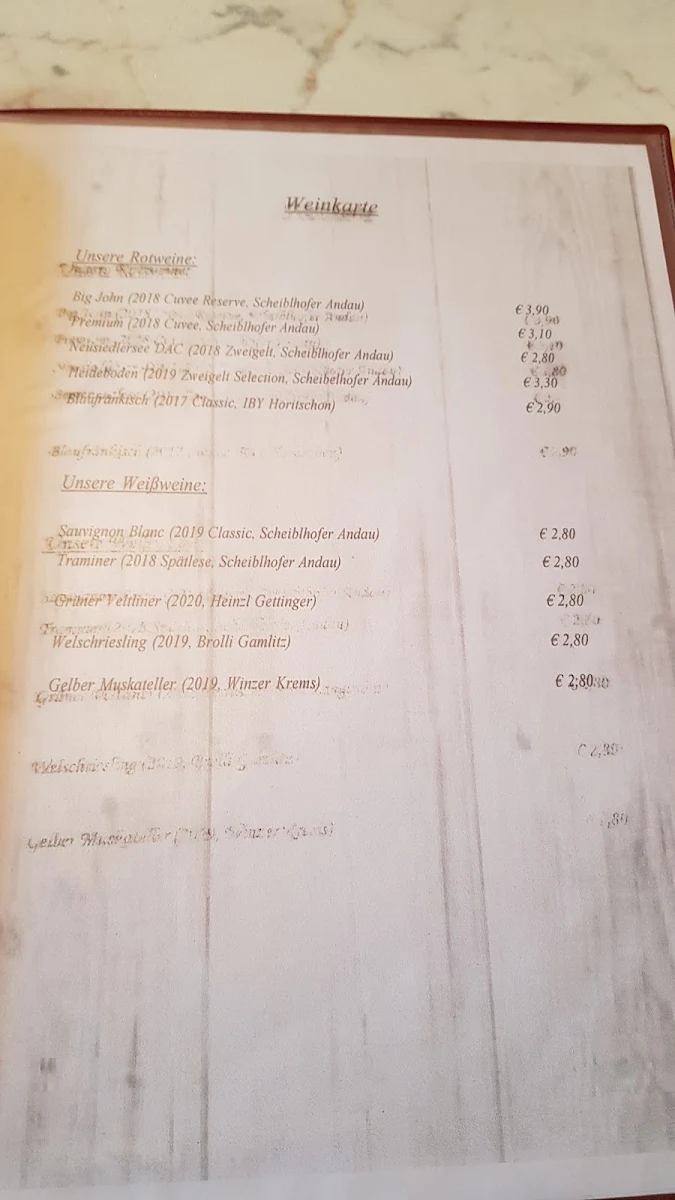 Weinkarte
Unsere Rotweine:
Big John (2018 Cuvee Reserve, Scheiblhofer Andau) € 3,90
Premium (2018 Cuvee, Scheiblhofer Andau) € 3,10
Neusiedlersee DAC (2018 Zweigelt, Scheiblhofer Andau) € 2,80
Heideboden (2019 Zweigelt Selection, Scheibelhofer Andau) € 3,30
Blaufränkisch (2017 Classic, IBY Horitschon) € 2,90
Unsere Weißweine:
Sauvignon Blanc (2019 Classic, Scheiblhofer Andau) € 2,80
Traminer (2018 Spätlese, Scheiblhofer Andau) € 2,80
Grüner Veltliner (2020, Heinzl Gettinger) € 2,80
Welschriesling (2019, Brolli Gamlitz) € 2,80
Gelber Muskateller (2019, Winzer Krems) € 2,80